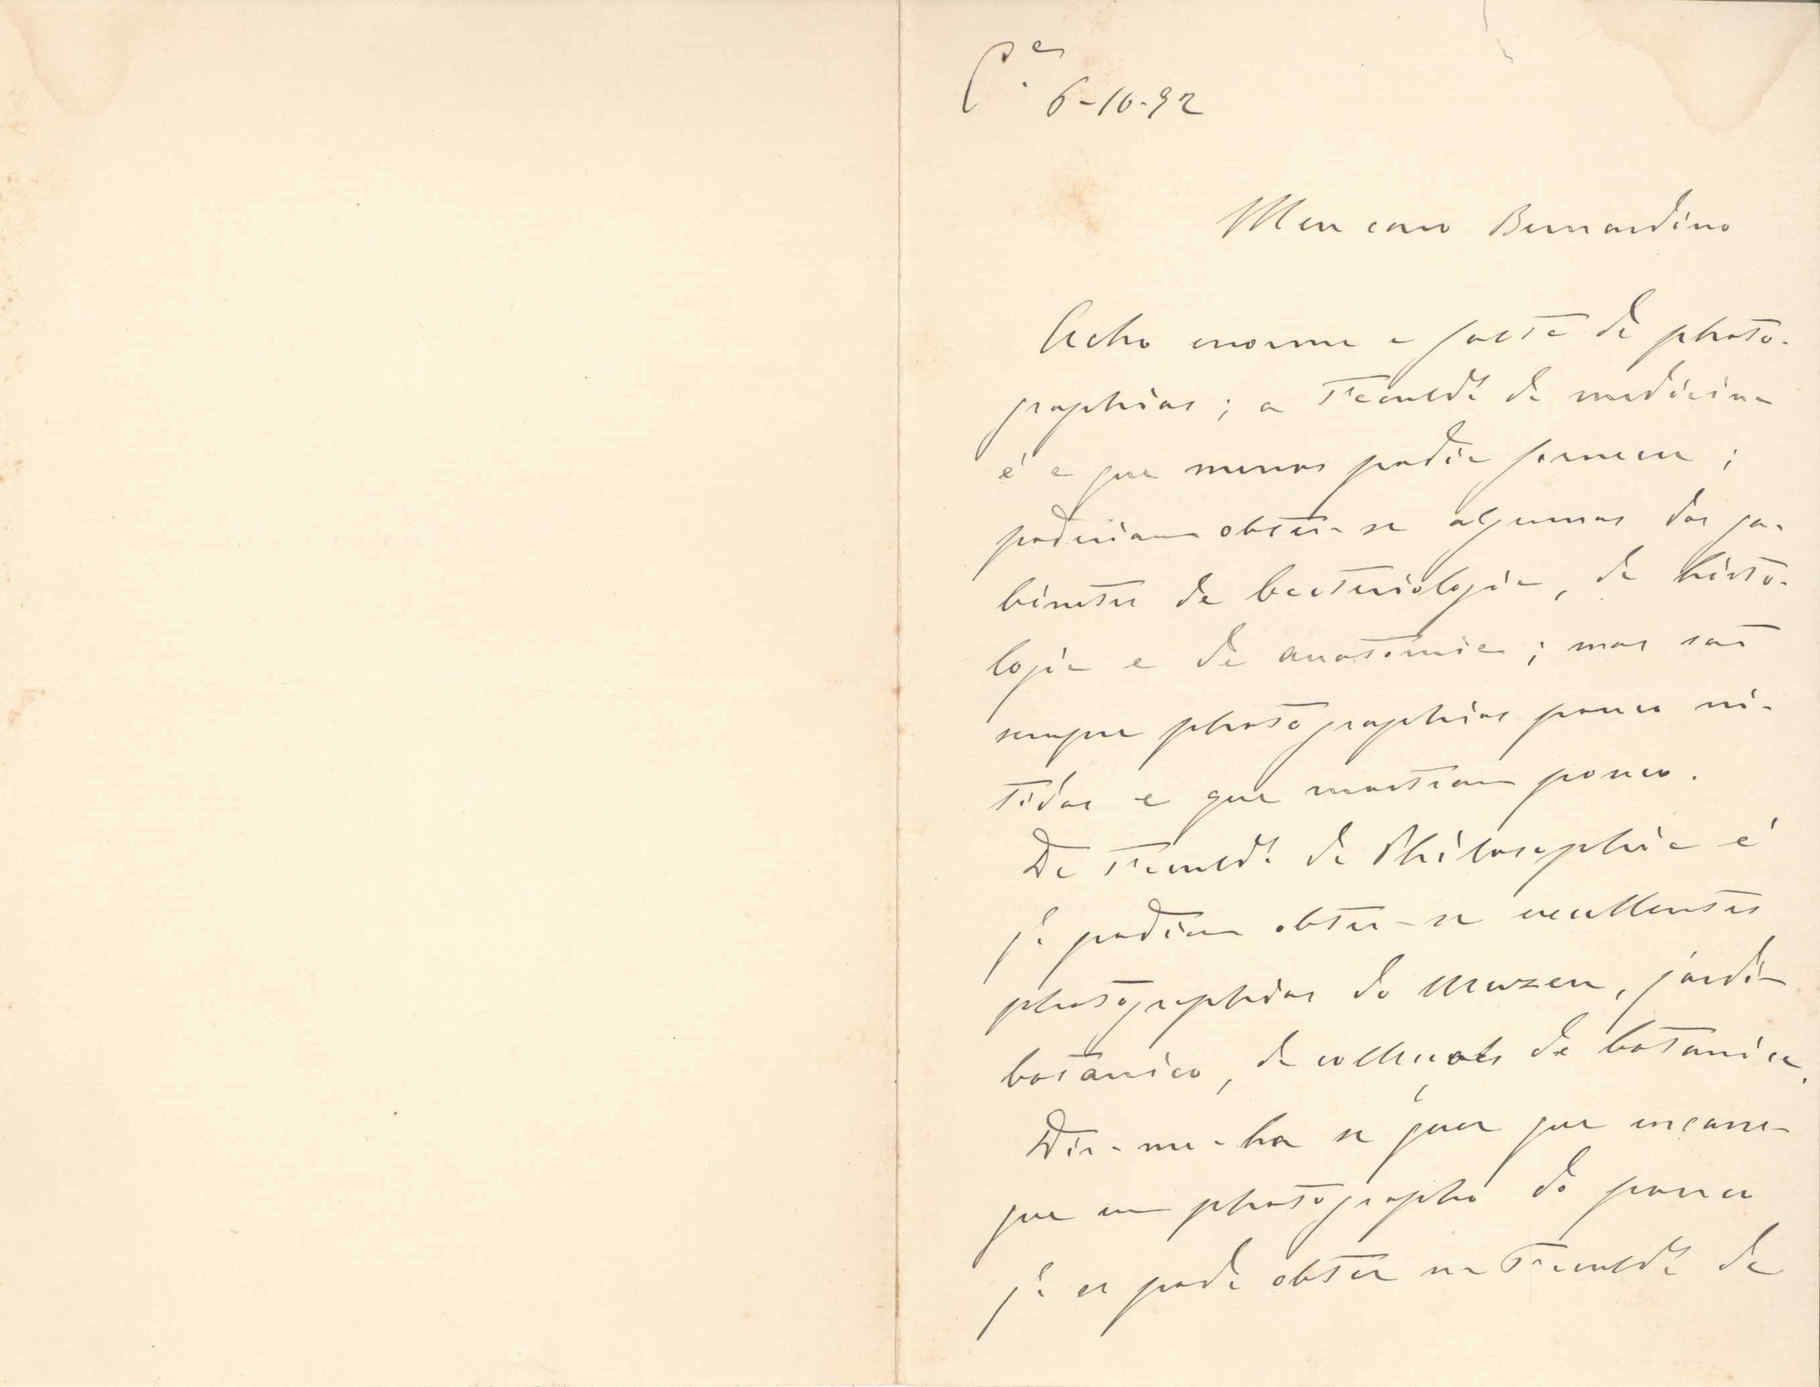 C.ª 6-10-92
Meu caro Bernardino
Acho enorme a falta de photo-
graphias; a Faculd.e de medicina
é a que menos podia fornecer;
poderiam obter-se algumas dos ga-
binetes de bacteriologia, de histo-
logia e de anatomia; mas são
sempre photographias pouco ni-
tidas e que mostram pouco.
Da Faculd.e de Philosophia é
q.e podiam obter-se excellentes
photographias do Muzeu, jardim
botanico, da collecção de botanica.
Dir-me-ha se quer que encarre-
gue um photographo do pouco
q.e se pode obter na Faculd.e de